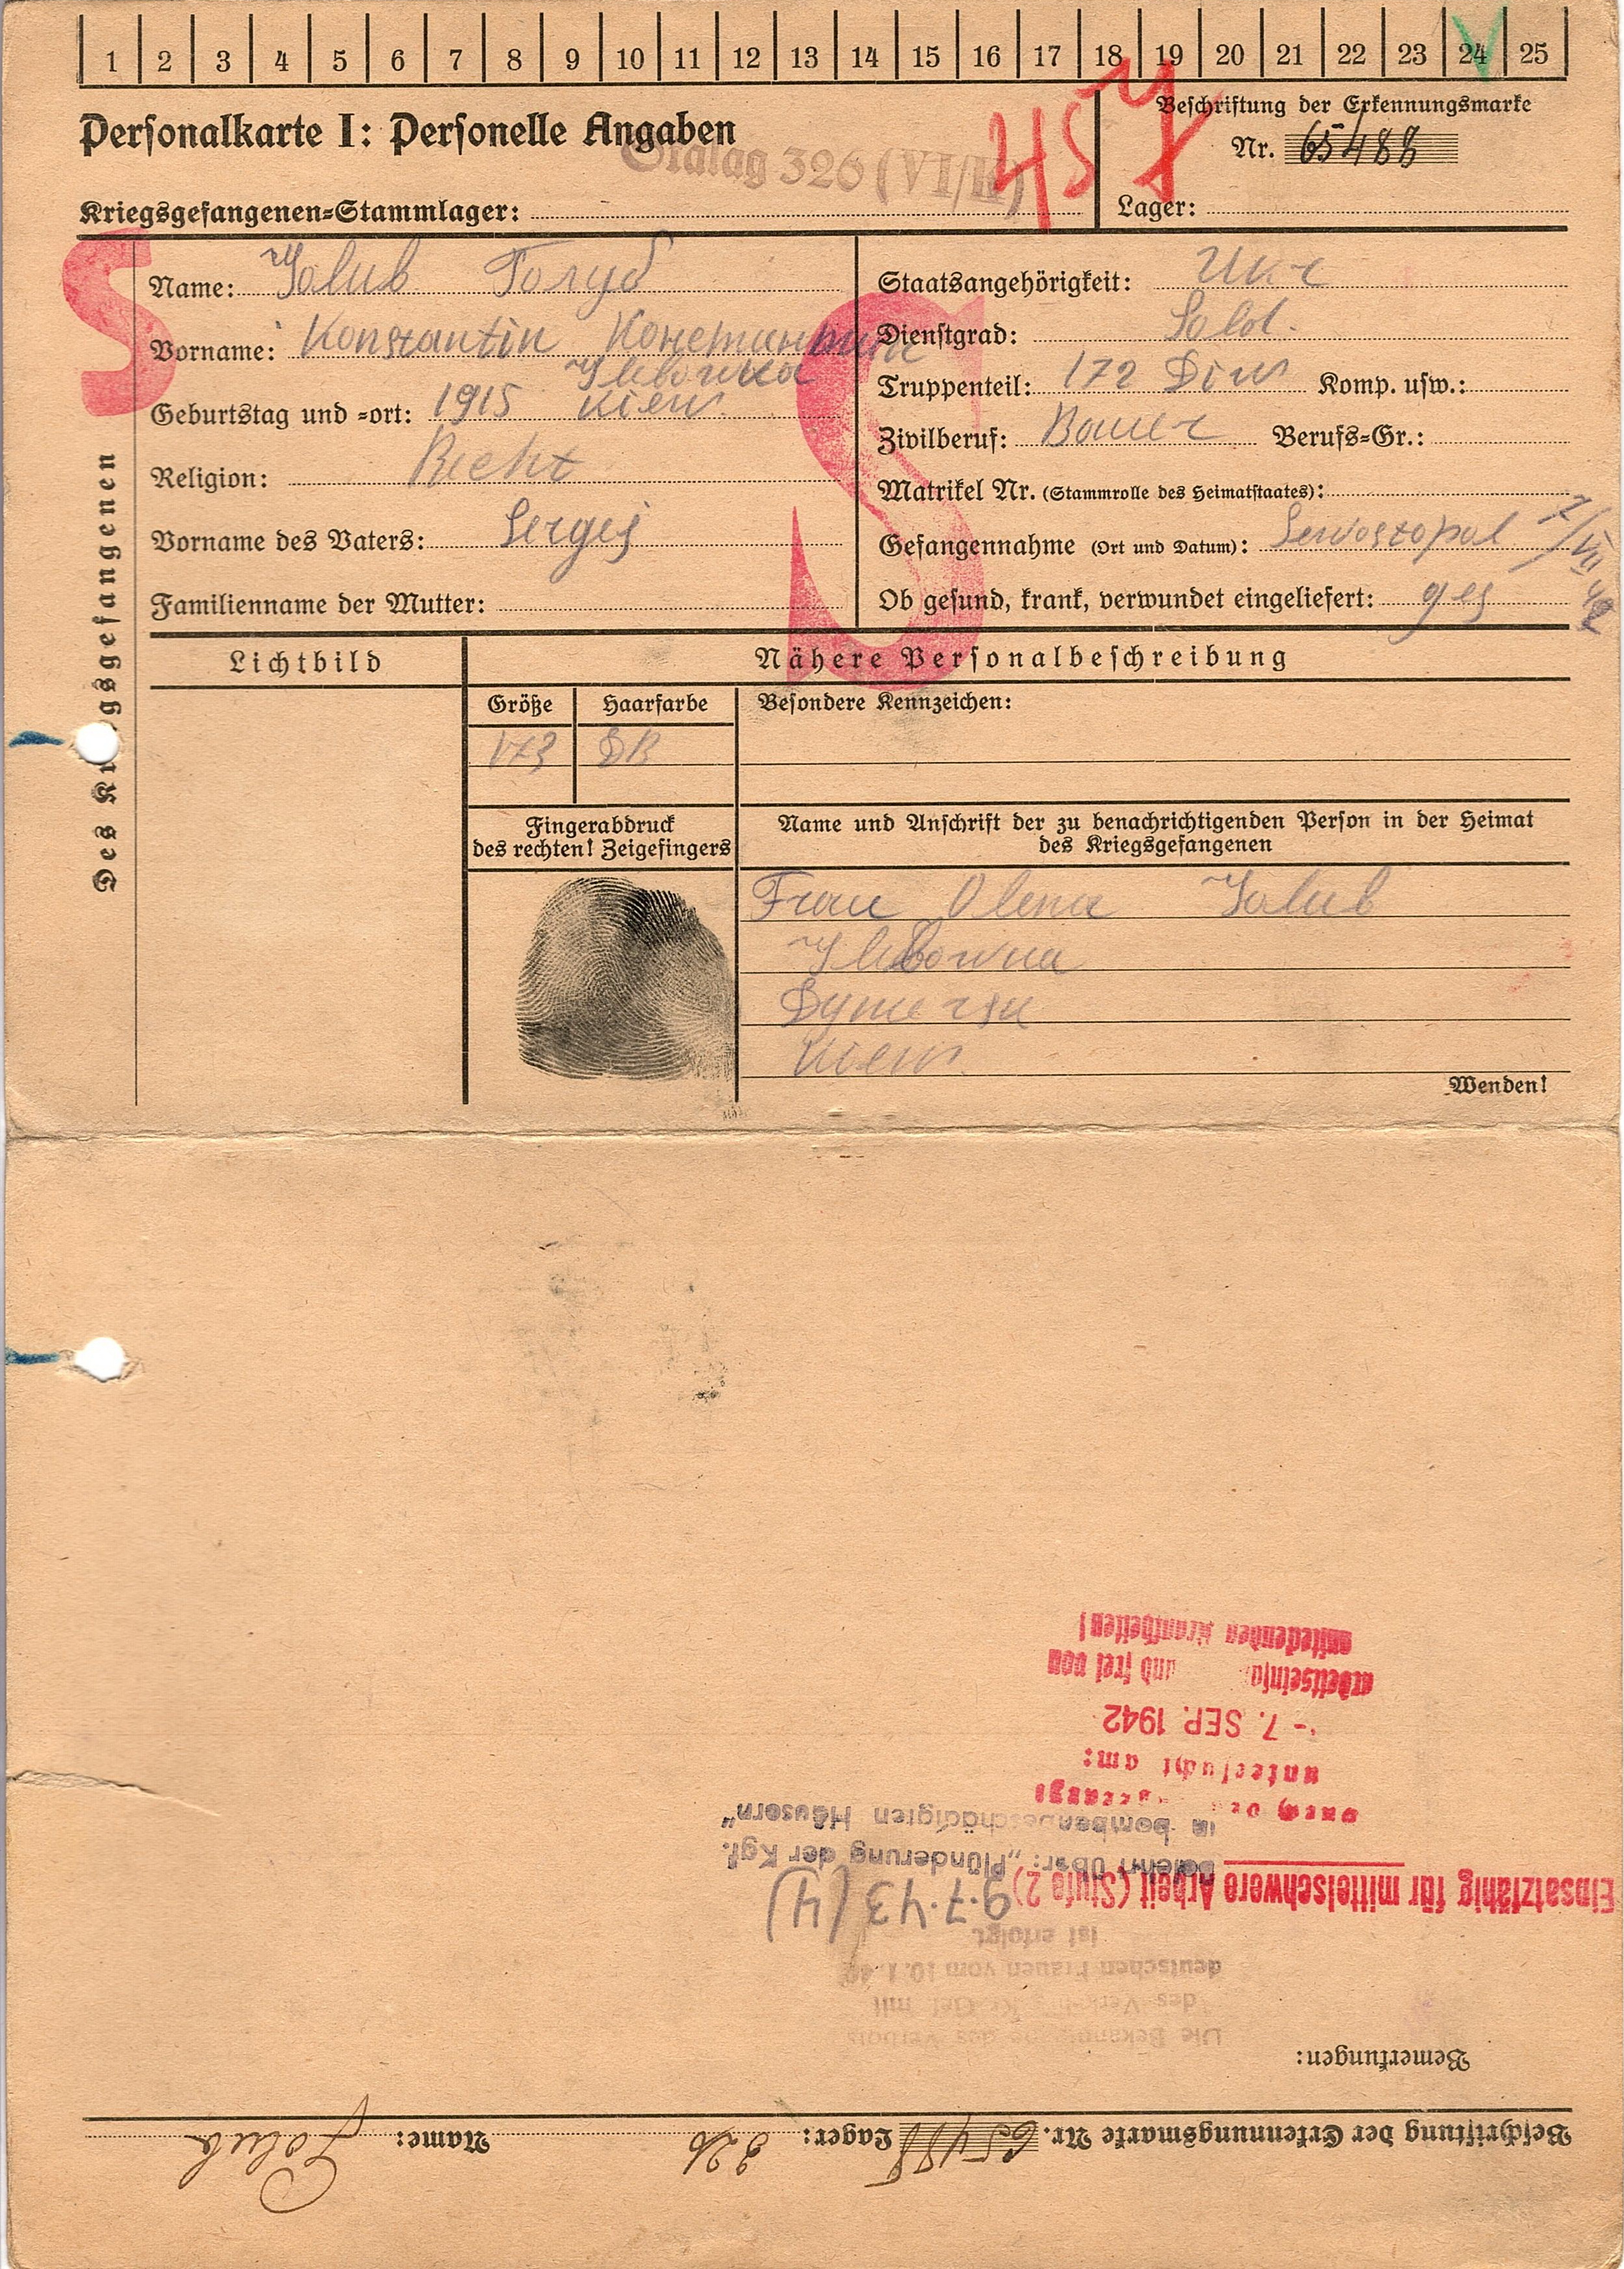 1 2 3 4 5 6 7 8 9 10 11 12 13 14 15 16 17 18 19 20 21 22 23 24 25
Personalkarte I: Personelle Angaben
Stalag 326 (VI/K)
45
Beschriftung der Erkennungsmarke
Nr. 65488
Kriegsgefangenen=Stammlager:
Lager:
S
S
Des Kr gsgefangenen
Name: Golub Голуб
Vorname: Konstantin Константин
Geburtstag und =ort: 1915 Kiew
Religion:
Vorname des Vaters: Sergej
Familienname der Mutter:
Staatsangehörigkeit: Ukr
Dienstgrad: Sold.
Truppenteil: 172 Div Komp. usw.:
Zivilberuf: Bauer Berufs=Gr.:
Matrikel Nr. (Stammrolle des Heimatstaates):
Gefangennahme (Ort und Datum): Sewostopol
Ob gesund, krank, verwundet eingeliefert: ges
Lichtbild
Nähere Personalbeschreibung
Größe Haarfarbe Besondere Kennzeichen:
173
Fingerabdruck
des rechten! Zeigefingers
Name und Anschrift der zu benachrichtigenden Person in der Heimat
des Kriegsgefangenen
Frau Olena Golub
Kiew
Wenden!
Beschriftung der Erkennungsmarke Nr. 65488 Lager: 326 Name: Golub
Bemerkungen:
Die des Verbots
des mit
deutschen Frauen vom 10.1.
ist erfolgt.
9.7.43 (4)
Einsatzfähig für mittelschwere Arbeit (Stufe 2)
über: „Plünderung der Kgf.
in bombenbeschädigten Häusern“
untersucht am:
- 7. SEP. 1942
und frei von
ansteckenden Krankheiten!